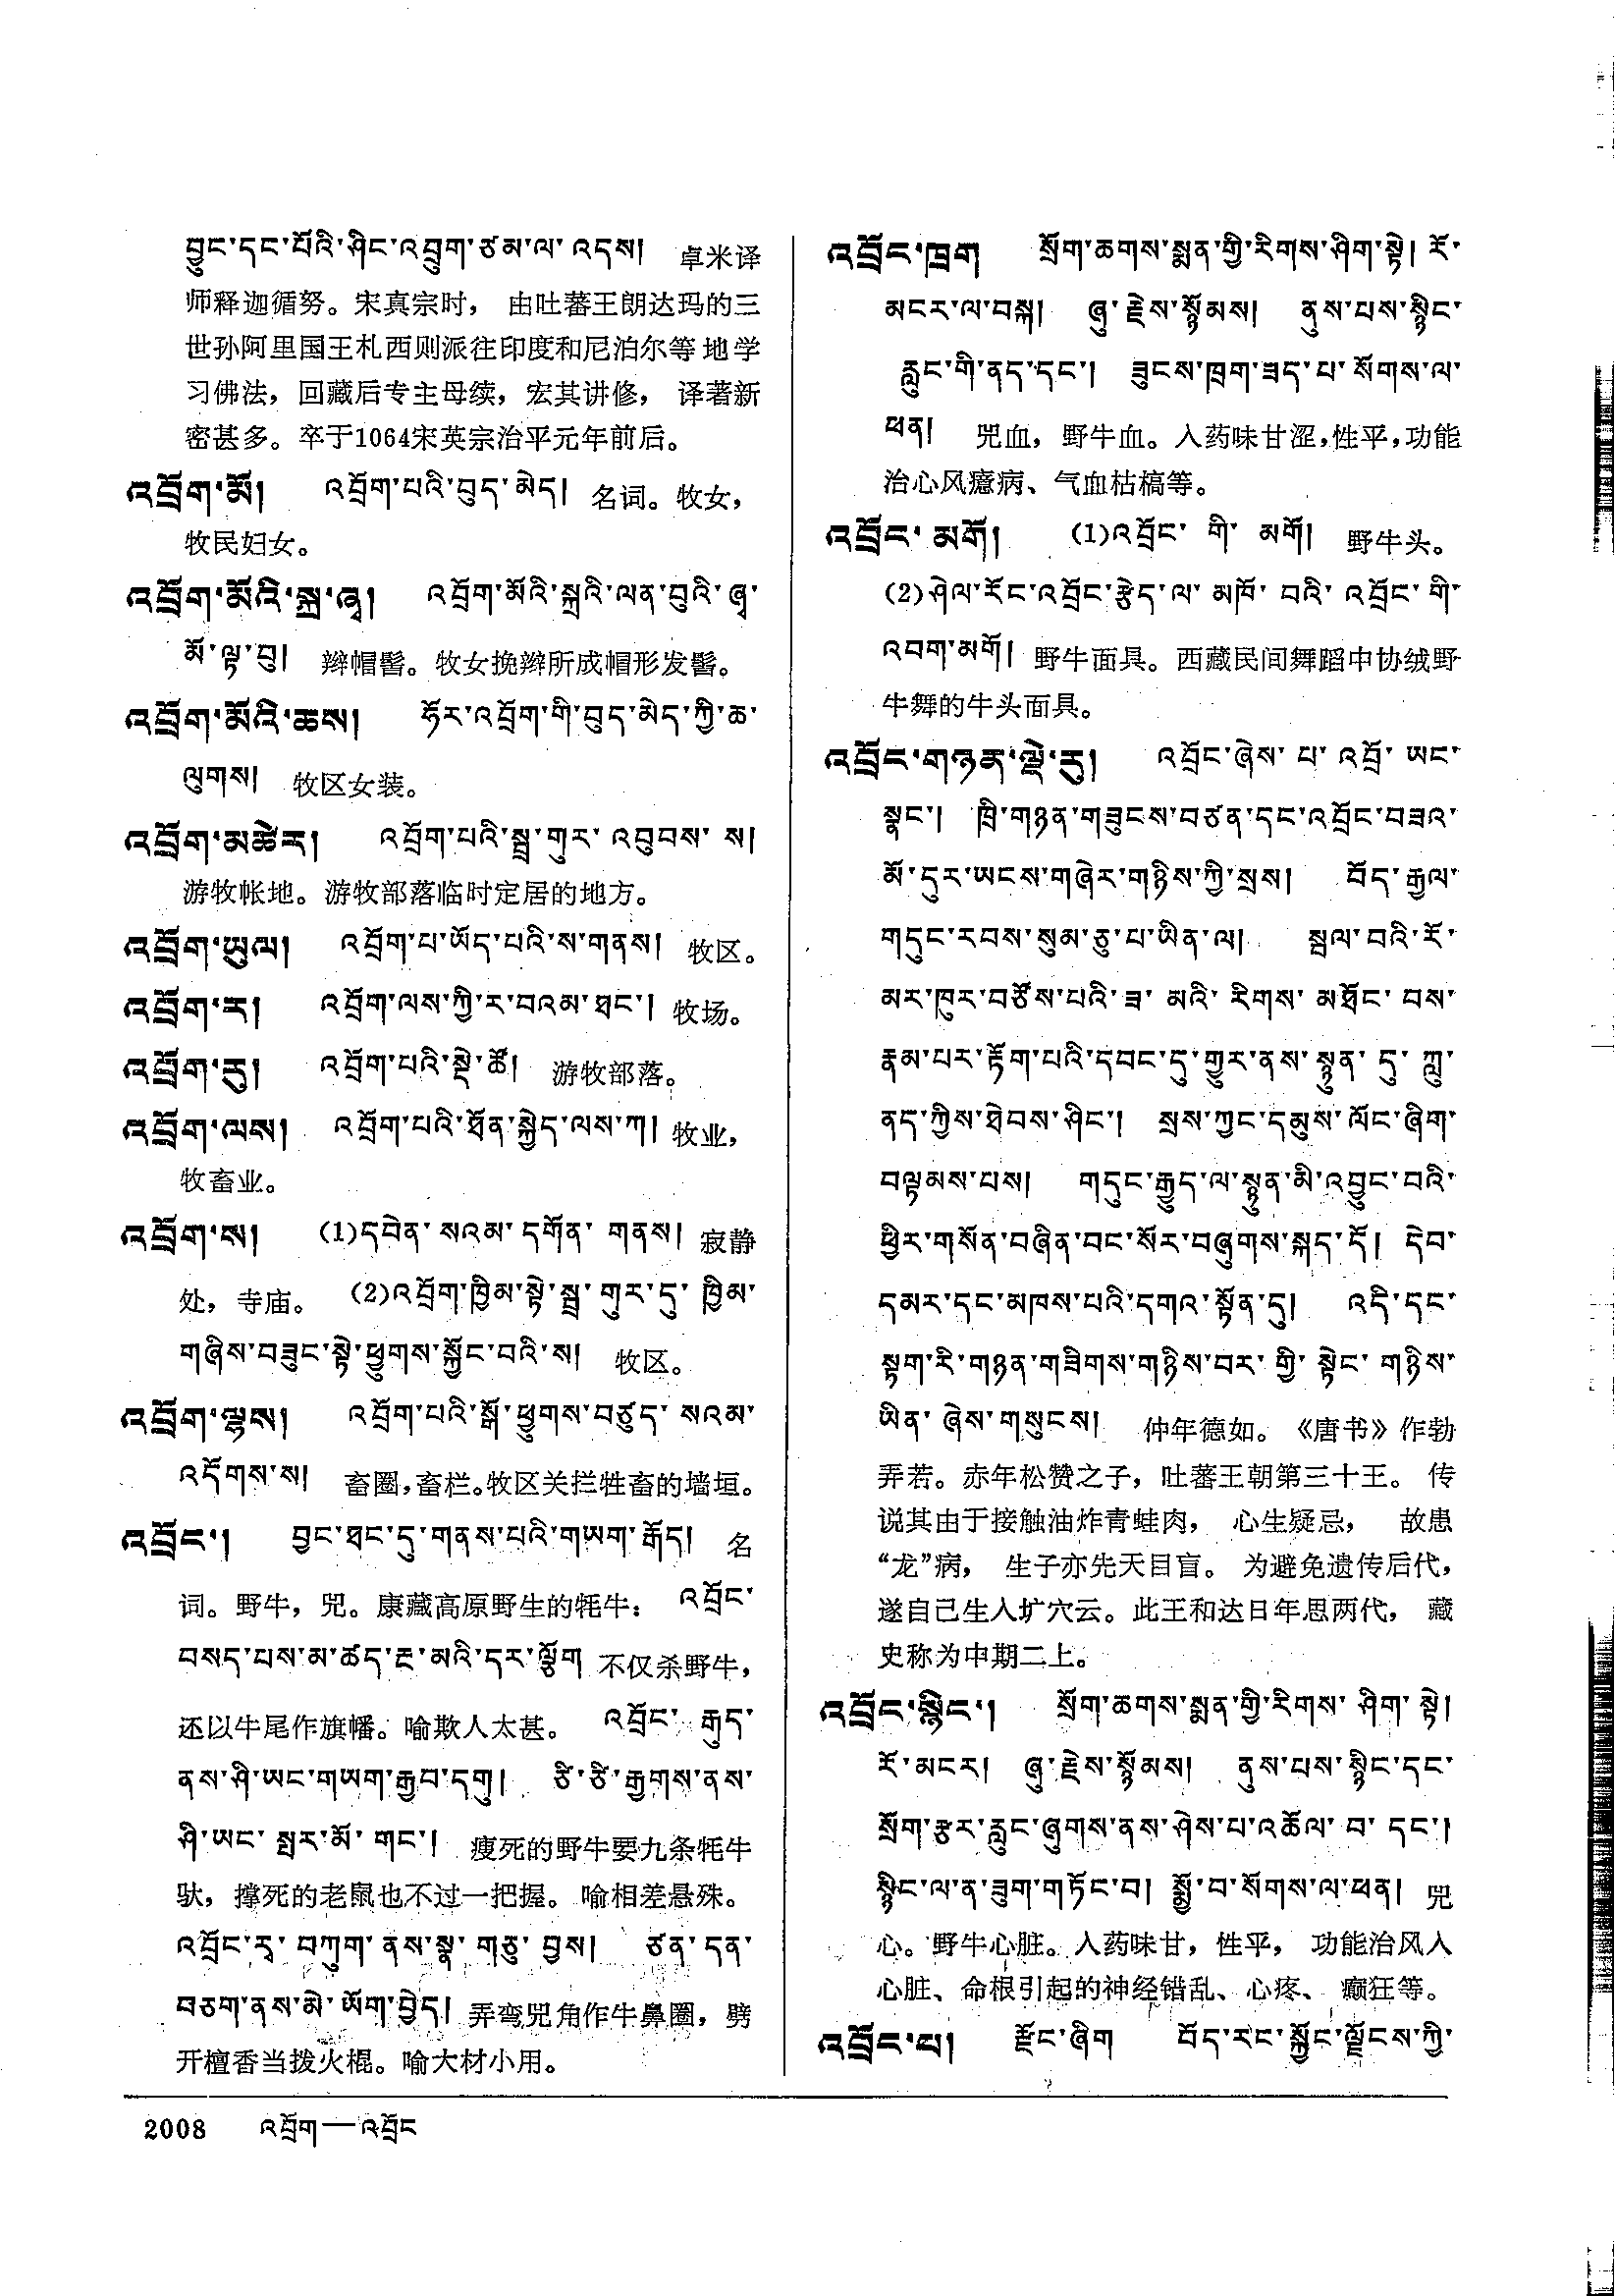 བྱུང་དང་པོའི་ཤིང་འབྲུག་ཙམ་ལ་འདས། 卓米译
师释迦循努。宋真宗时，由吐蕃王朗达玛的三
世孙阿里国王札西则派往印度和尼泊尔等地学
习佛法，回藏后专主母续，宏其讲修，译著新
密甚多。卒于1064宋英宗治平元年前后。
འབྲོག་མོ། འབྲོག་པའི་བུད་མེད། 名词。牧女，
牧民妇女。
འབྲོག་མོའི་སྐྲ་ཞྭ། འབྲོག་མོའི་སྐྲའི་ལན་བུའི་ཞྭ་
མོ་ལྟ་བུ། 辫帽髻。牧女挽辫所成帽形发髻。
འབྲོག་མོའི་ཆས། ཧོར་འབྲོག་གི་བུད་མེད་ཀྱི་ཆ་
ལུགས། 牧区女装。
འབྲོག་མཚེར། འབྲོག་པའི་སྦྲ་གུར་འབུབས་ས།
游牧帐地。游牧部落临时定居的地方。
འབྲོག་ཡུལ། འབྲོག་པ་ཡོད་པའི་ས་གནས། 牧区。
འབྲོག་ར། འབྲོག་ལས་ཀྱི་ར་བའམ་ཐང་། 牧场。
འབྲོག་རུ། འབྲོག་པའི་སྡེ་ཚོ། 游牧部落。
འབྲོག་ལས། འབྲོག་པའི་ཐོན་སྐྱེད་ལས་ཀ། 牧业，
牧畜业。
འབྲོག་ས། (1)དབེན་སའམ་དགོན་གནས། 寂静
处，寺庙。 (2)འབྲོག་ཁྱིམ་སྟེ་སྦྲ་གུར་དུ་ཁྱིམ་
གཞིས་བཟུང་སྟེ་ཕྱུགས་སྐྱོང་བའི་ས། 牧区。
འབྲོག་ལྷས། འབྲོག་པའི་སྒོ་ཕྱུགས་བཙུད་སའམ་
འདོགས་ས། 畜圈，畜栏。牧区关拦牲畜的墙垣。
འབྲོང་། བྱང་ཐང་དུ་གནས་པའི་གཡག་རྒོད། 名
词。野牛，兕。康藏高原野生的牦牛： འབྲོང་
བསད་པས་མ་ཚད་རྔ་མའི་དར་ལྕོག 不仅杀野牛，
还以牛尾作旗幡。喻欺人太甚。 འབྲོང་རྒུད་
ནས་ཤི་ཡང་གཡག་རྒྱབ་དགུ། ཙི་ཙི་རྒྱགས་ནས་
ཤི་ཡང་སྤར་མོ་གང་། 瘦死的野牛要九条牦牛
驮，撑死的老鼠也不过一把握。喻相差悬殊。
འབྲོང་རྭ་བཀུག་ནས་སྣ་གཅུ་བྱས། ཙན་དན་
བཅག་ནས་མེ་ཡོག་བྱེད། 弄弯兕角作牛鼻圈，劈
开檀香当拨火棍。喻大材小用。
འབྲོང་ཁྲག སྲོག་ཆགས་སྨན་གྱི་རིགས་ཤིག་སྟེ། རོ་
མངར་ལ་བསྐ། ཞུ་རྗེས་སྙོམས། ནུས་པས་སྙིང་
རླུང་གི་ནད་དང་། ཟུངས་ཁྲག་ཟད་པ་སོགས་ལ་
ཕན། 兕血，野牛血。入药味甘涩，性平，功能
治心风癔病、气血枯槁等。
འབྲོང་མགོ། (1)འབྲོང་གི་མགོ། 野牛头。
(2)ཤེལ་རོང་འབྲོང་རྩེད་ལ་མཁོ་བའི་འབྲོང་གི་
འབག་མགོ། 野牛面具。西藏民间舞蹈中协绒野
牛舞的牛头面具。
འབྲོང་གཉན་ལྡེ་རུ། འབྲོང་ཞེས་པ་འབྲོ་ཡང་
སྣང་། ཁྲི་གཉན་གཟུངས་བཙན་དང་འབྲོང་བཟའ་
མོ་དུར་ཡངས་གཞེར་གཉིས་ཀྱི་སྲས། བོད་རྒྱལ་
གདུང་རབས་སུམ་ཅུ་པ་ཡིན་ལ། སྦལ་བའི་རོ་
མར་ཁུར་བཙོས་པའི་ཟ་མའི་རིགས་མཐོང་བས་
རྣམ་པར་རྟོག་པའི་དབང་དུ་གྱུར་ནས་སྙུན་དུ་ཀླུ་
ནད་ཀྱིས་ཐེབས་ཤིང་། སྲས་ཀྱང་དམུས་ལོང་ཞིག་
བལྟམས་པས། གདུང་རྒྱུད་ལ་སྙུན་མི་འབྱུང་བའི་
ཕྱིར་གསོན་བཞིན་བང་སོར་བཞུགས་སྐད་དོ། དེབ་
དམར་དང་མཁས་པའི་དགའ་སྟོན་དུ། འདི་དང་
སྟག་རི་གཉན་གཟིགས་གཉིས་བར་གྱི་སྟེང་གཉིས་
ཡིན་ཞེས་གསུངས། 仲年德如。《唐书》作勃
弄若。赤年松赞之子，吐蕃王朝第三十王。传
说其由于接触油炸青蛙肉，心生疑忌，故患
“龙”病，生子亦先天目盲。为避免遗传后代，
遂自己生入圹穴云。此王和达日年思两代，藏
史称为中期二上。
འབྲོང་སྙིང་། སྲོག་ཆགས་སྨན་གྱི་རིགས་ཤིག་སྟེ།
རོ་མངར། ཞུ་རྗེས་སྙོམས། ནུས་པས་སྙིང་དང་
སྲོག་རྩར་རླུང་ཞུགས་ནས་ཤེས་པ་འཚོལ་བ་དང་།
སྙིང་ལ་ན་ཟུག་གཏོང་བ། སྨྱོ་བ་སོགས་ལ་ཕན། 兕
心。野牛心脏。入药味甘，性平，功能治风入
心脏、命根引起的神经错乱、心疼、癫狂等。
འབྲོང་པ། རྫོང་ཞིག བོད་རང་སྐྱོང་ལྗོངས་ཀྱི་
2008 འབྲོག—འབྲོང